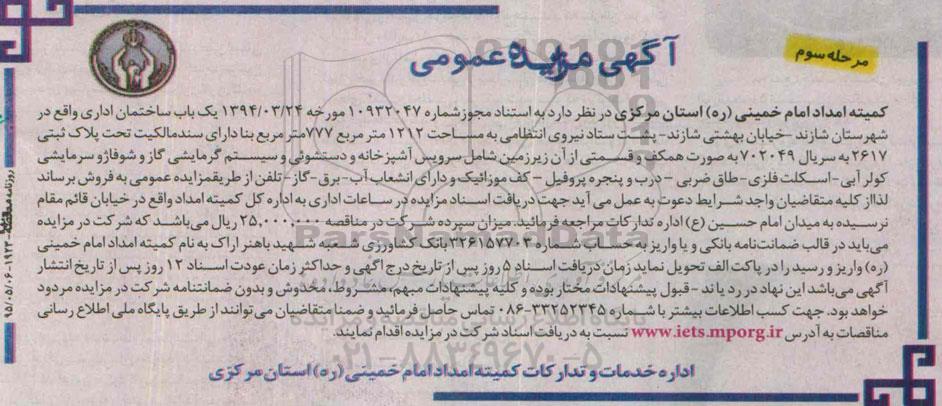 مرحله سوم
آگهی مزایده عمومی
کمیته امداد امام خمینی (ره) استان مرکزی در نظر دارد به استناد مجوز شماره ۱۰۹۳۲۰۴۷ مورخه ۱۳۹۴/۰۳/۲۴ یک باب ساختمان اداری واقع در
شهرستان شازند -خیابان بهشتی شازند- پشت ستاد نیروی انتظامی به مساحت ۱۲۱۲ متر مربع ۷۷۷متر مربع بنا دارای سند مالکیت تحت پلاک ثبتی
۲۶۱۷ به سریال ۷۰۲۰۴۹ به صورت همکف و قسمتی از آن زیرزمین شامل سرویس آشپزخانه و دستشوئی و سیستم گرمایشی گاز و شوفاژ و سرمایشی
کولر آبی-اسکلت فلزی-طاق ضربی - درب و پنجره پروفیل - کف موزائیک و دارای انشعاب آب-برق-گاز-تلفن از طریقمزایده عمومی به فروش برساند
لذا از کلیه متقاضیان واجد شرایط دعوت به عمل می آید جهت دریافت اسناد مزایده در ساعات اداری به اداره کل کمیته امداد واقع در خیابان قائم مقام
نرسیده به میدان امام حسین (ع) اداره تدارکات مراجعه فرمائید. میزان سپرده شرکت در مناقصه ۲۵,۰۰۰,۰۰۰ ریال می‌باشد که شرکت در مزایده
می‌باید در قالب ضمانت‌نامه بانکی و یا واریز به حساب شماره ۳۲۶۱۵۷۷۰۳ بانک کشاورزی شعبه شهید باهنر اراک به نام کمیته امداد امام خمینی
(ره) واریز و رسید را در پاکت الف تحویل نماید زمان دریافت اسناد ۵ روز پس از تاریخ درج اگهی و حداکثر زمان عودت اسناد ۱۲ روز پس از تاریخ انتشار
آگهی می‌باشد این نهاد در رد یا ند -قبول پیشنهادات مختار بوده و کلیه پیشنهادات مبهم، مشروط، مخدوش و بدون ضمانتنامه شرکت در مزایده مردود
خواهد بود. جهت کسب اطلاعات بیشتر با شماره ۳۳۲۵۲۳۴۵-۰۸۶ تماس حاصل فرمائید و ضمنا متقاضیان می‌توانند از طریق پایگاه ملی اطلاع رسانی
مناقصات به آدرس www.iets.mporg.ir نسبت به دریافت اسناد شرکت در مزایده اقدام نمایند.
اداره خدمات و تدارکات کمیته امداد امام خمینی (ره) استان مرکزی
ParsNamadData
۰۲۱-۸۸۳۴۹۶۷۰-۵